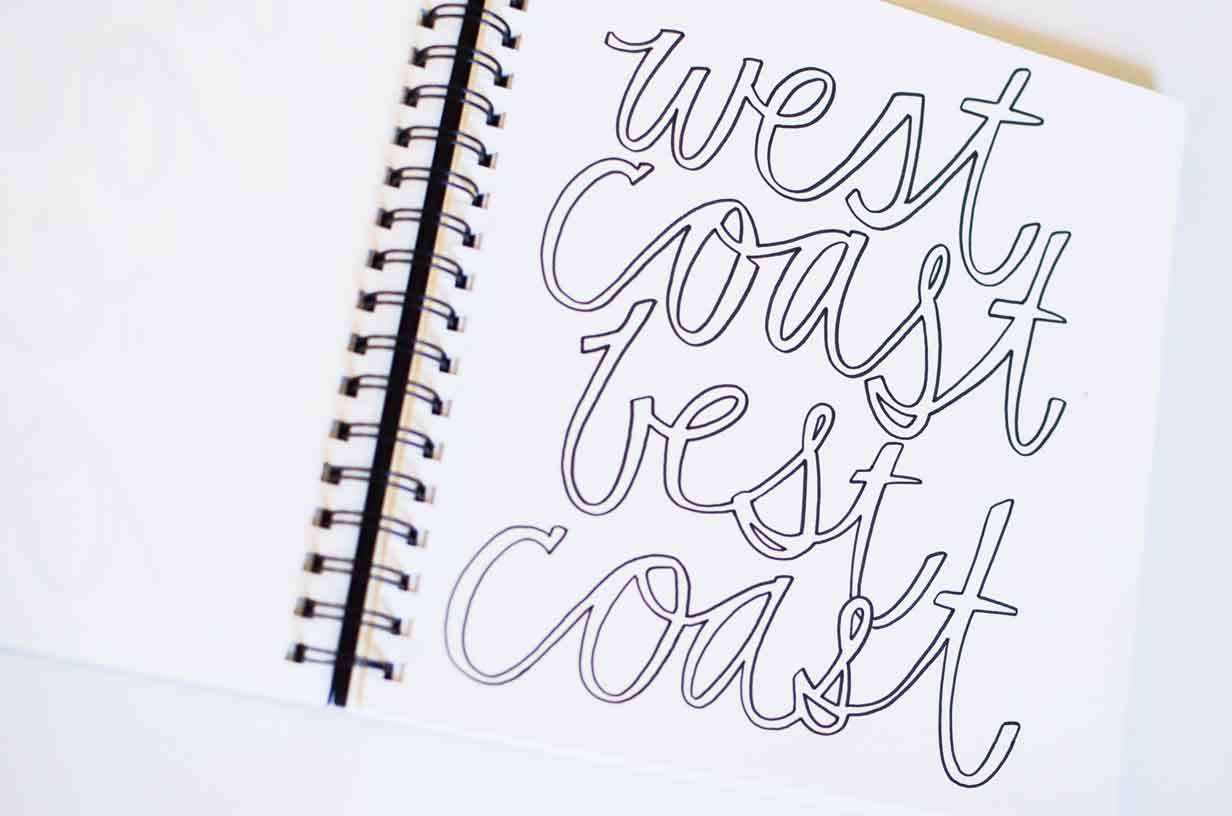 west
coast
best
coast